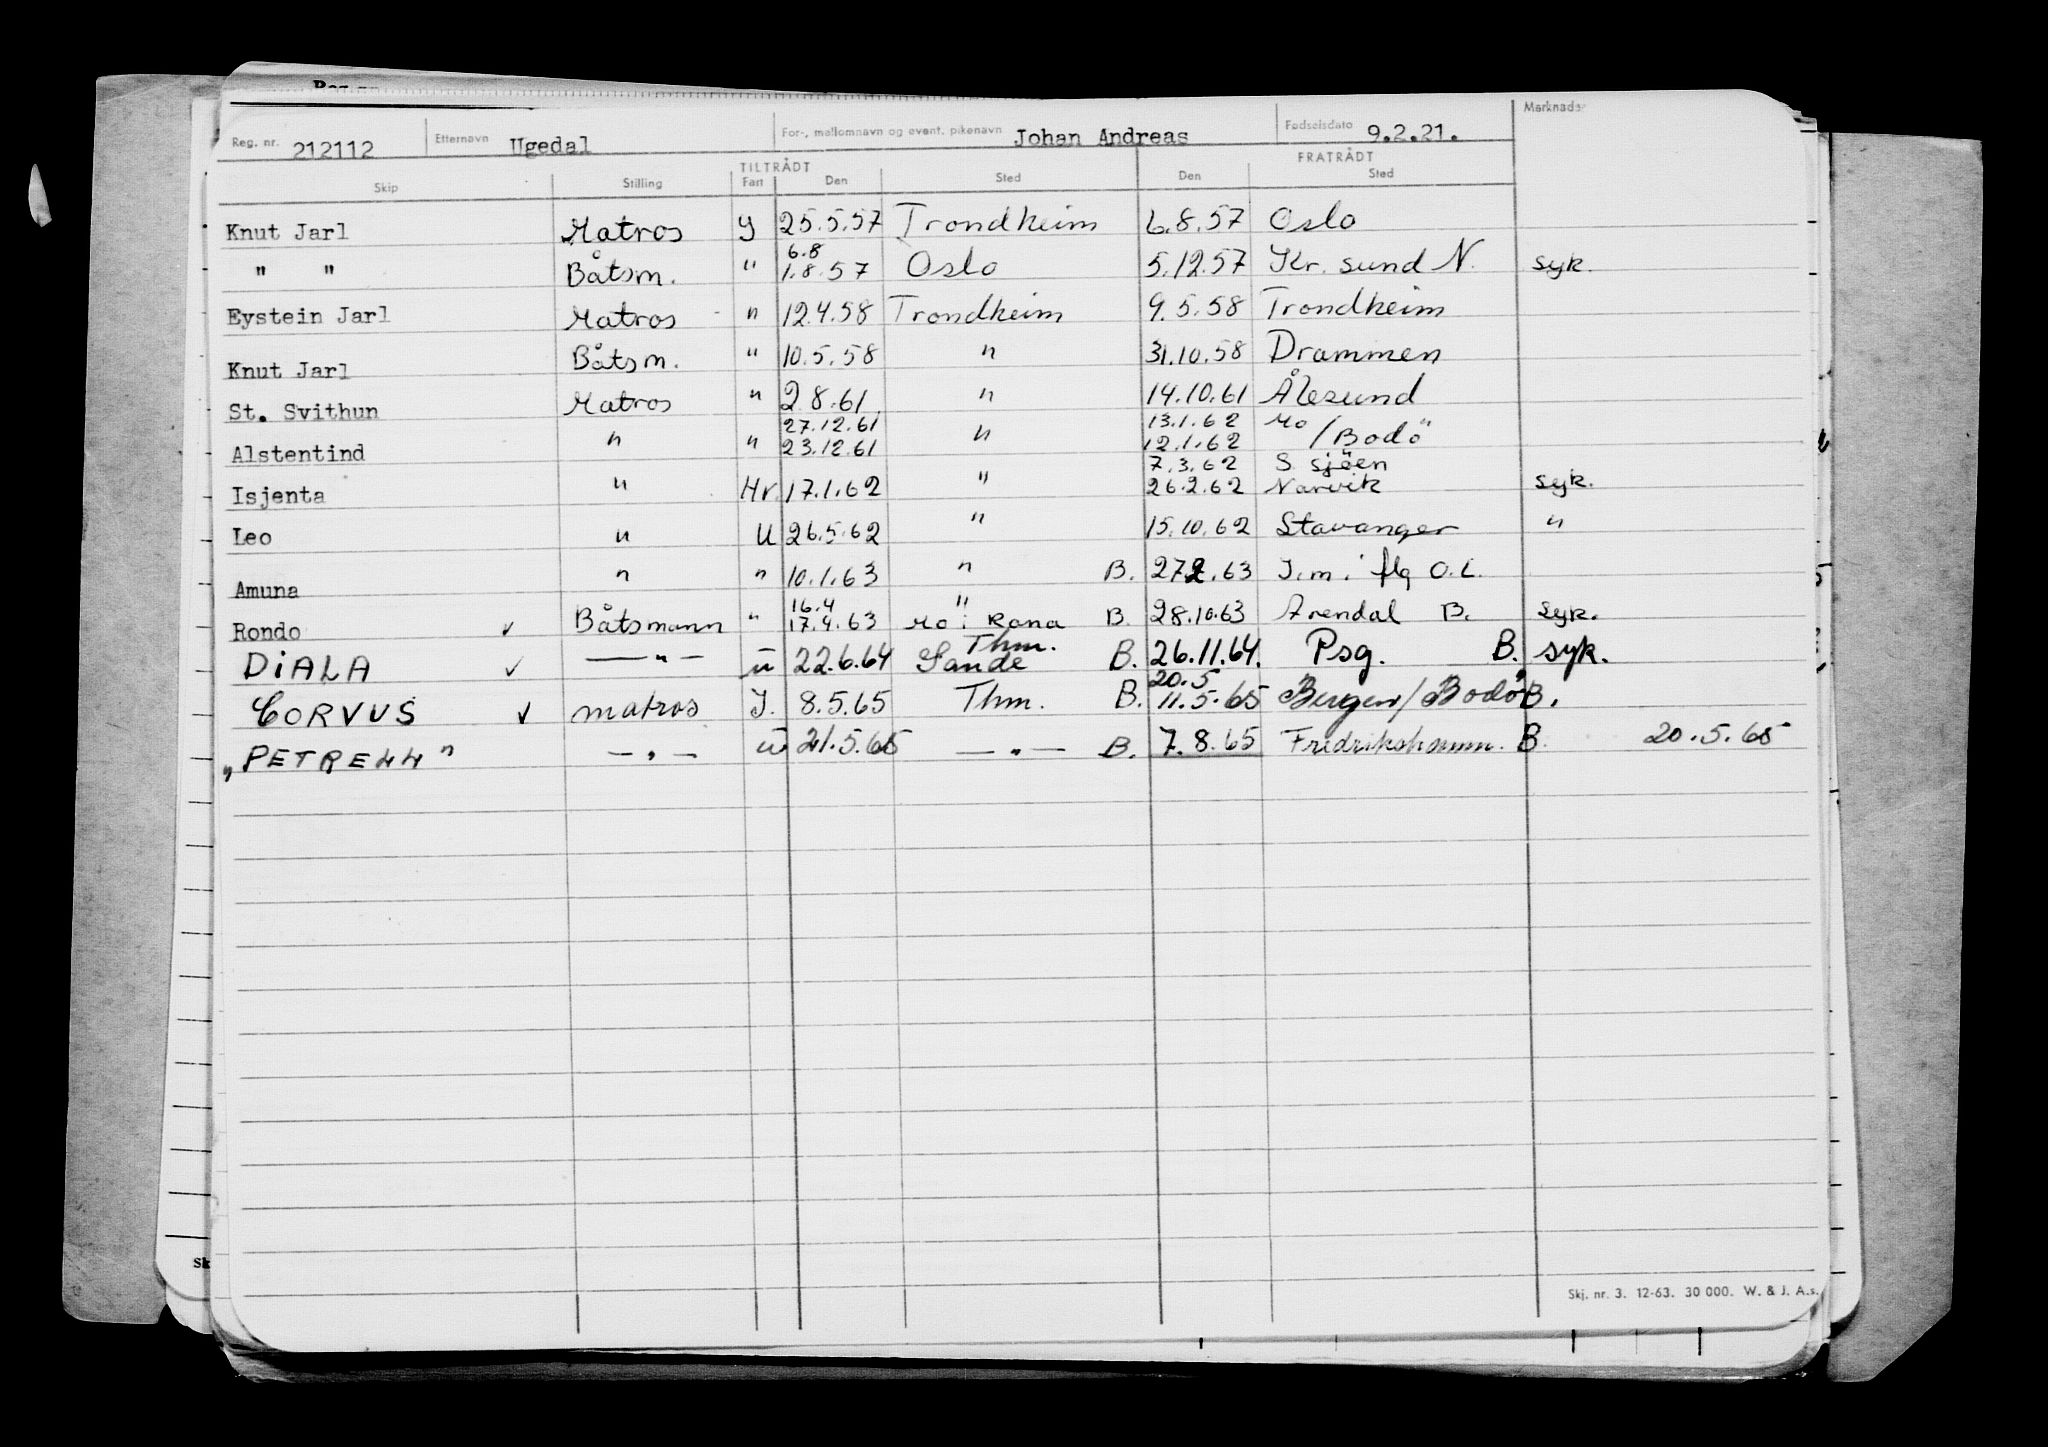 Reg. nr. 212112 Etternavn Ugedal For-, mellomnavn og event. pikenavn Johan Andreas Fødselsdato 9.2.21. Merknader
TILTRÅDT FRATRÅDT
Skip Stilling Fart Den Sted Den Sted
Knut Jarl Matros Y 25.5.57 Trondheim 6.8.57 Oslo
6.8
" " Båtsm. " 1.8.57 Oslo 5.12.57 Kr. sund N. syk.
Eystein Jarl Matros " 12.4.58 Trondheim 9.5.58 Trondheim
Knut Jarl Båtsm. " 10.5.58 " 31.10.58 Drammen
St. Svithun Matros " 2.8.61 " 14.10.61 Ålesund
27.12.61 13.1.62 Mo
Alstentind " " 23.12.61 " 12.1.62 /Bodö
7.3.62 S. sjöen
Isjenta " Hv 17.1.62 " 26.2.62 Narvik syk.
Leo " U 26.5.62 " 15.10.62 Stavanger "
Amuna " " 10.1.63 " B. 27.2.63 J.m. i flg O.L.
16.4 "
Rondo ✓ Båtsmann " 17.4.63 Mo i Rana B. 28.10.63 Arendal B. syk.
Thm.
DiALA ✓ — " — ū 22.6.64 Sande B. 26.11.64. Psg. B. syk.
20.5
CORVUS ✓ matros J. 8.5.65 Thm. B. 11.5.65 Bergen/Bodö B.
„PETRELL" — " — ū 21.5.65 — " — B. 7.8.65 Fredrikshavn. B. 20.5.65
Sk
Skj. nr. 3. 12-63. 30 000. W. & J. A.s.